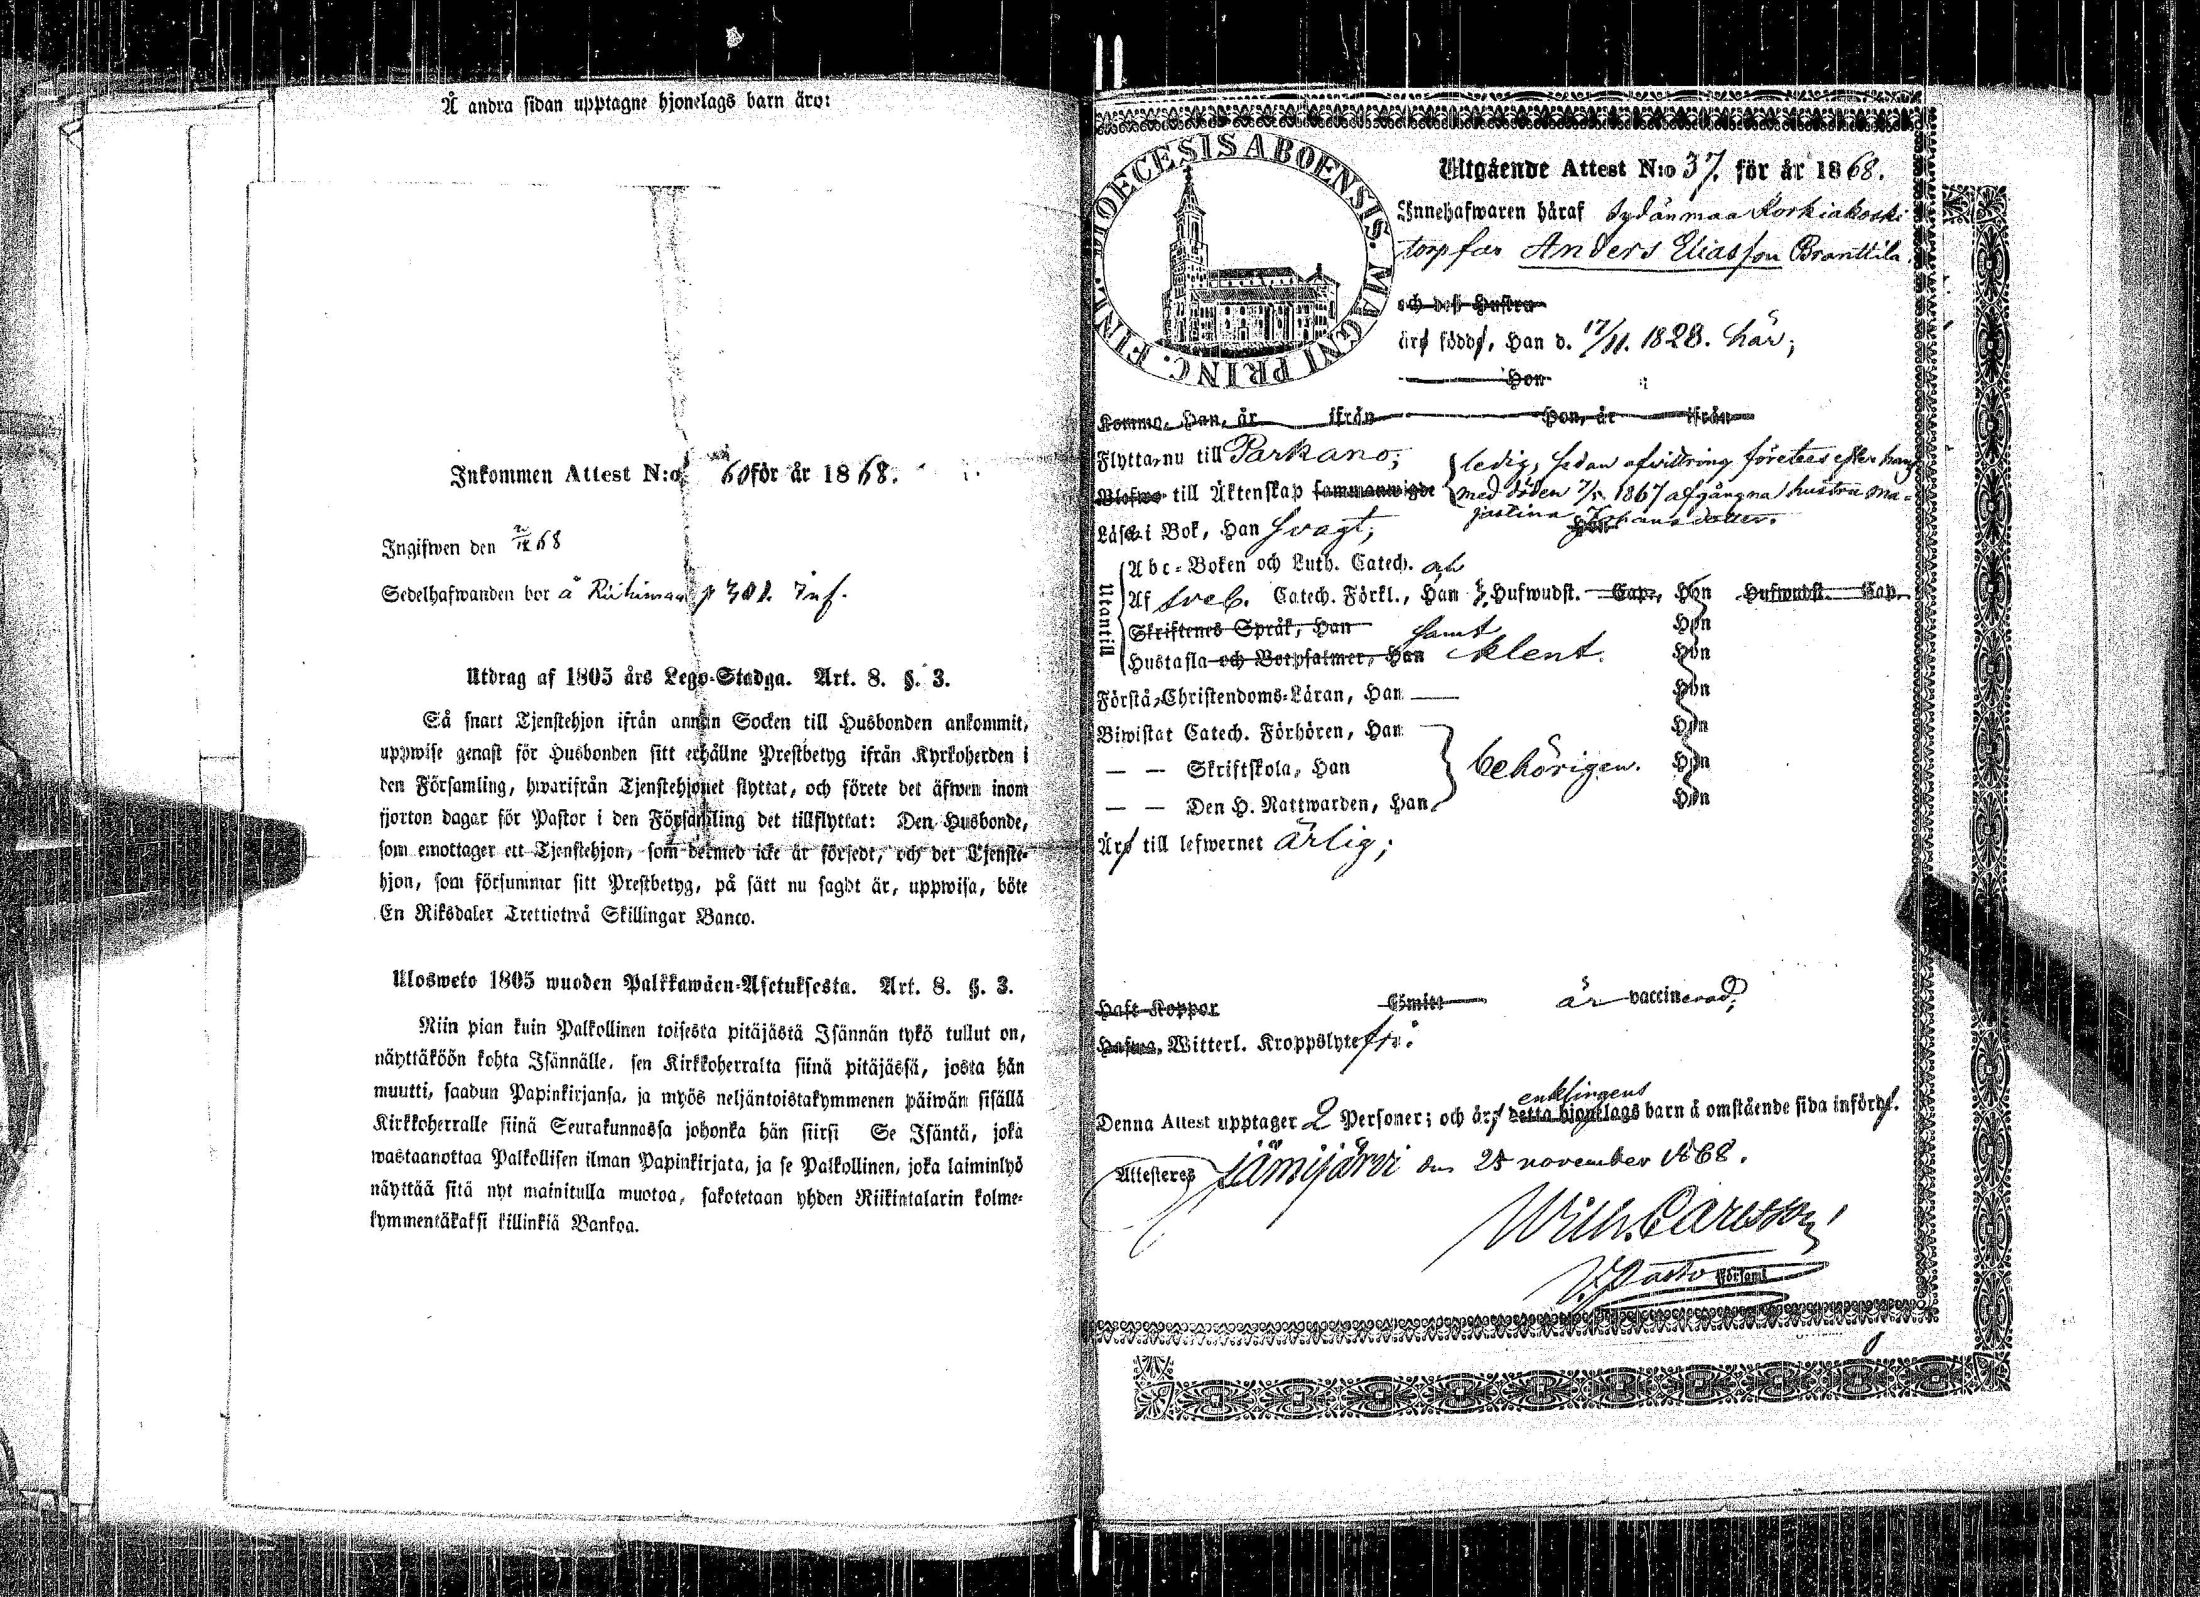 Å andra sidan upptagne hjonelags barn äro:
Inkommen Attest N:o 60 för år 1868.
Ingifwen den 2/12 68
Sedelhafwanden bor å p 301. Inf.
Utdrag af 1805 års Lego-Stadga. Art. 8. §. 3.
Så snart Tjenstehjon ifrån annan Socken till Husbonden ankommit,
uppwise genast för Husbonden sitt erhållne Prestbetyg ifrån Kyrkoherden i
den Församling, hwarifrån Tjenstehjonet flyttat, och förete det äfwen inom
fjorton dagar för Pastor i den Församling det tillflyttat: Den Husbonde,
som emottager ett Tjenstehjon, som dermed icke är försedt, och det Tjenste-
hjon, som försummar sitt Prestbetyg, på sätt nu sagdt är, uppwisa, böte
En Riksdaler Trettiotwå Skillingar Banco.
Ulosweto 1805 wuoden Palkkawäen-Asetuksesta. Art. 8. §. 3.
Niin pian kuin Palkollinen toisesta pitäjästä Isännän tykö tullut on,
näyttäköön kohta Isännälle, sen Kirkkoherralta siinä pitäjässä, josta hän
muutti, saadun Papinkirjansa, ja myös neljäntoistakymmenen päiwän sisällä
Kirkkoherralle siinä Seurakunnassa johonka hän siirsi Se Isäntä, joka
wastaanottaa Palkollisen ilman Papinkirjata, ja se Palkollinen, joka laiminlyö
näyttää sitä nyt mainitulla muotoa, sakotetaan yhden Riikintalarin kolme-
kymmentäkaksi killinkiä Bankoa.
DIOECESIS ABOENSIS. MAGNI PRINC. FINL.
Utgående Attest N:o 37. för år 1868.
Innehafwaren häraf Sydänmaa Korkiakoski
torpfar Anders Eliasson Branttila
och dess Hustru
äro födde, Han d. 17/11. 1828. här;
Hon
Komme, Han, år ifrån Hon, år ifrån
Flytta, nu till Parkano; ledig, sedan afvittring företees efter hans
Blefwo till Äktenskap sammanwigde med döden 7/5. 1867 afgångna hustru Ma-
jastina Johansdotter.
Läse i Bok, Han svagt; Hon
Utantill
Abc-Boken och Luth. Catech. och
Af Sveb. Catech. Förkl., Han Hufwudst. Cap., Hon Hufwudst. Cap.
Skriftenes Språk, Han samt Hon
Hustafla och Botpsalmer, Han klent. Hon
Förstå, Christendoms-Läran, Han Hon
Biwistat Catech. Förhören, Han Hon
— — Skriftskola, Han behörigen. Hon
— — Den H. Nattwarden, Han Hon
Äro till lefwernet ärlig;
Haft Koppor Esmitt är vaccinerad;
Hafwa, Witterl. Kroppslyte fri.
enklingens
Denna Attest upptager 2 Personer; och äro detta hjonelags barn å omstående sida införde.
Attesteres Jämijärvi den 25 november 1868.
Wilh. Carlsson
V. Pastor Församl.